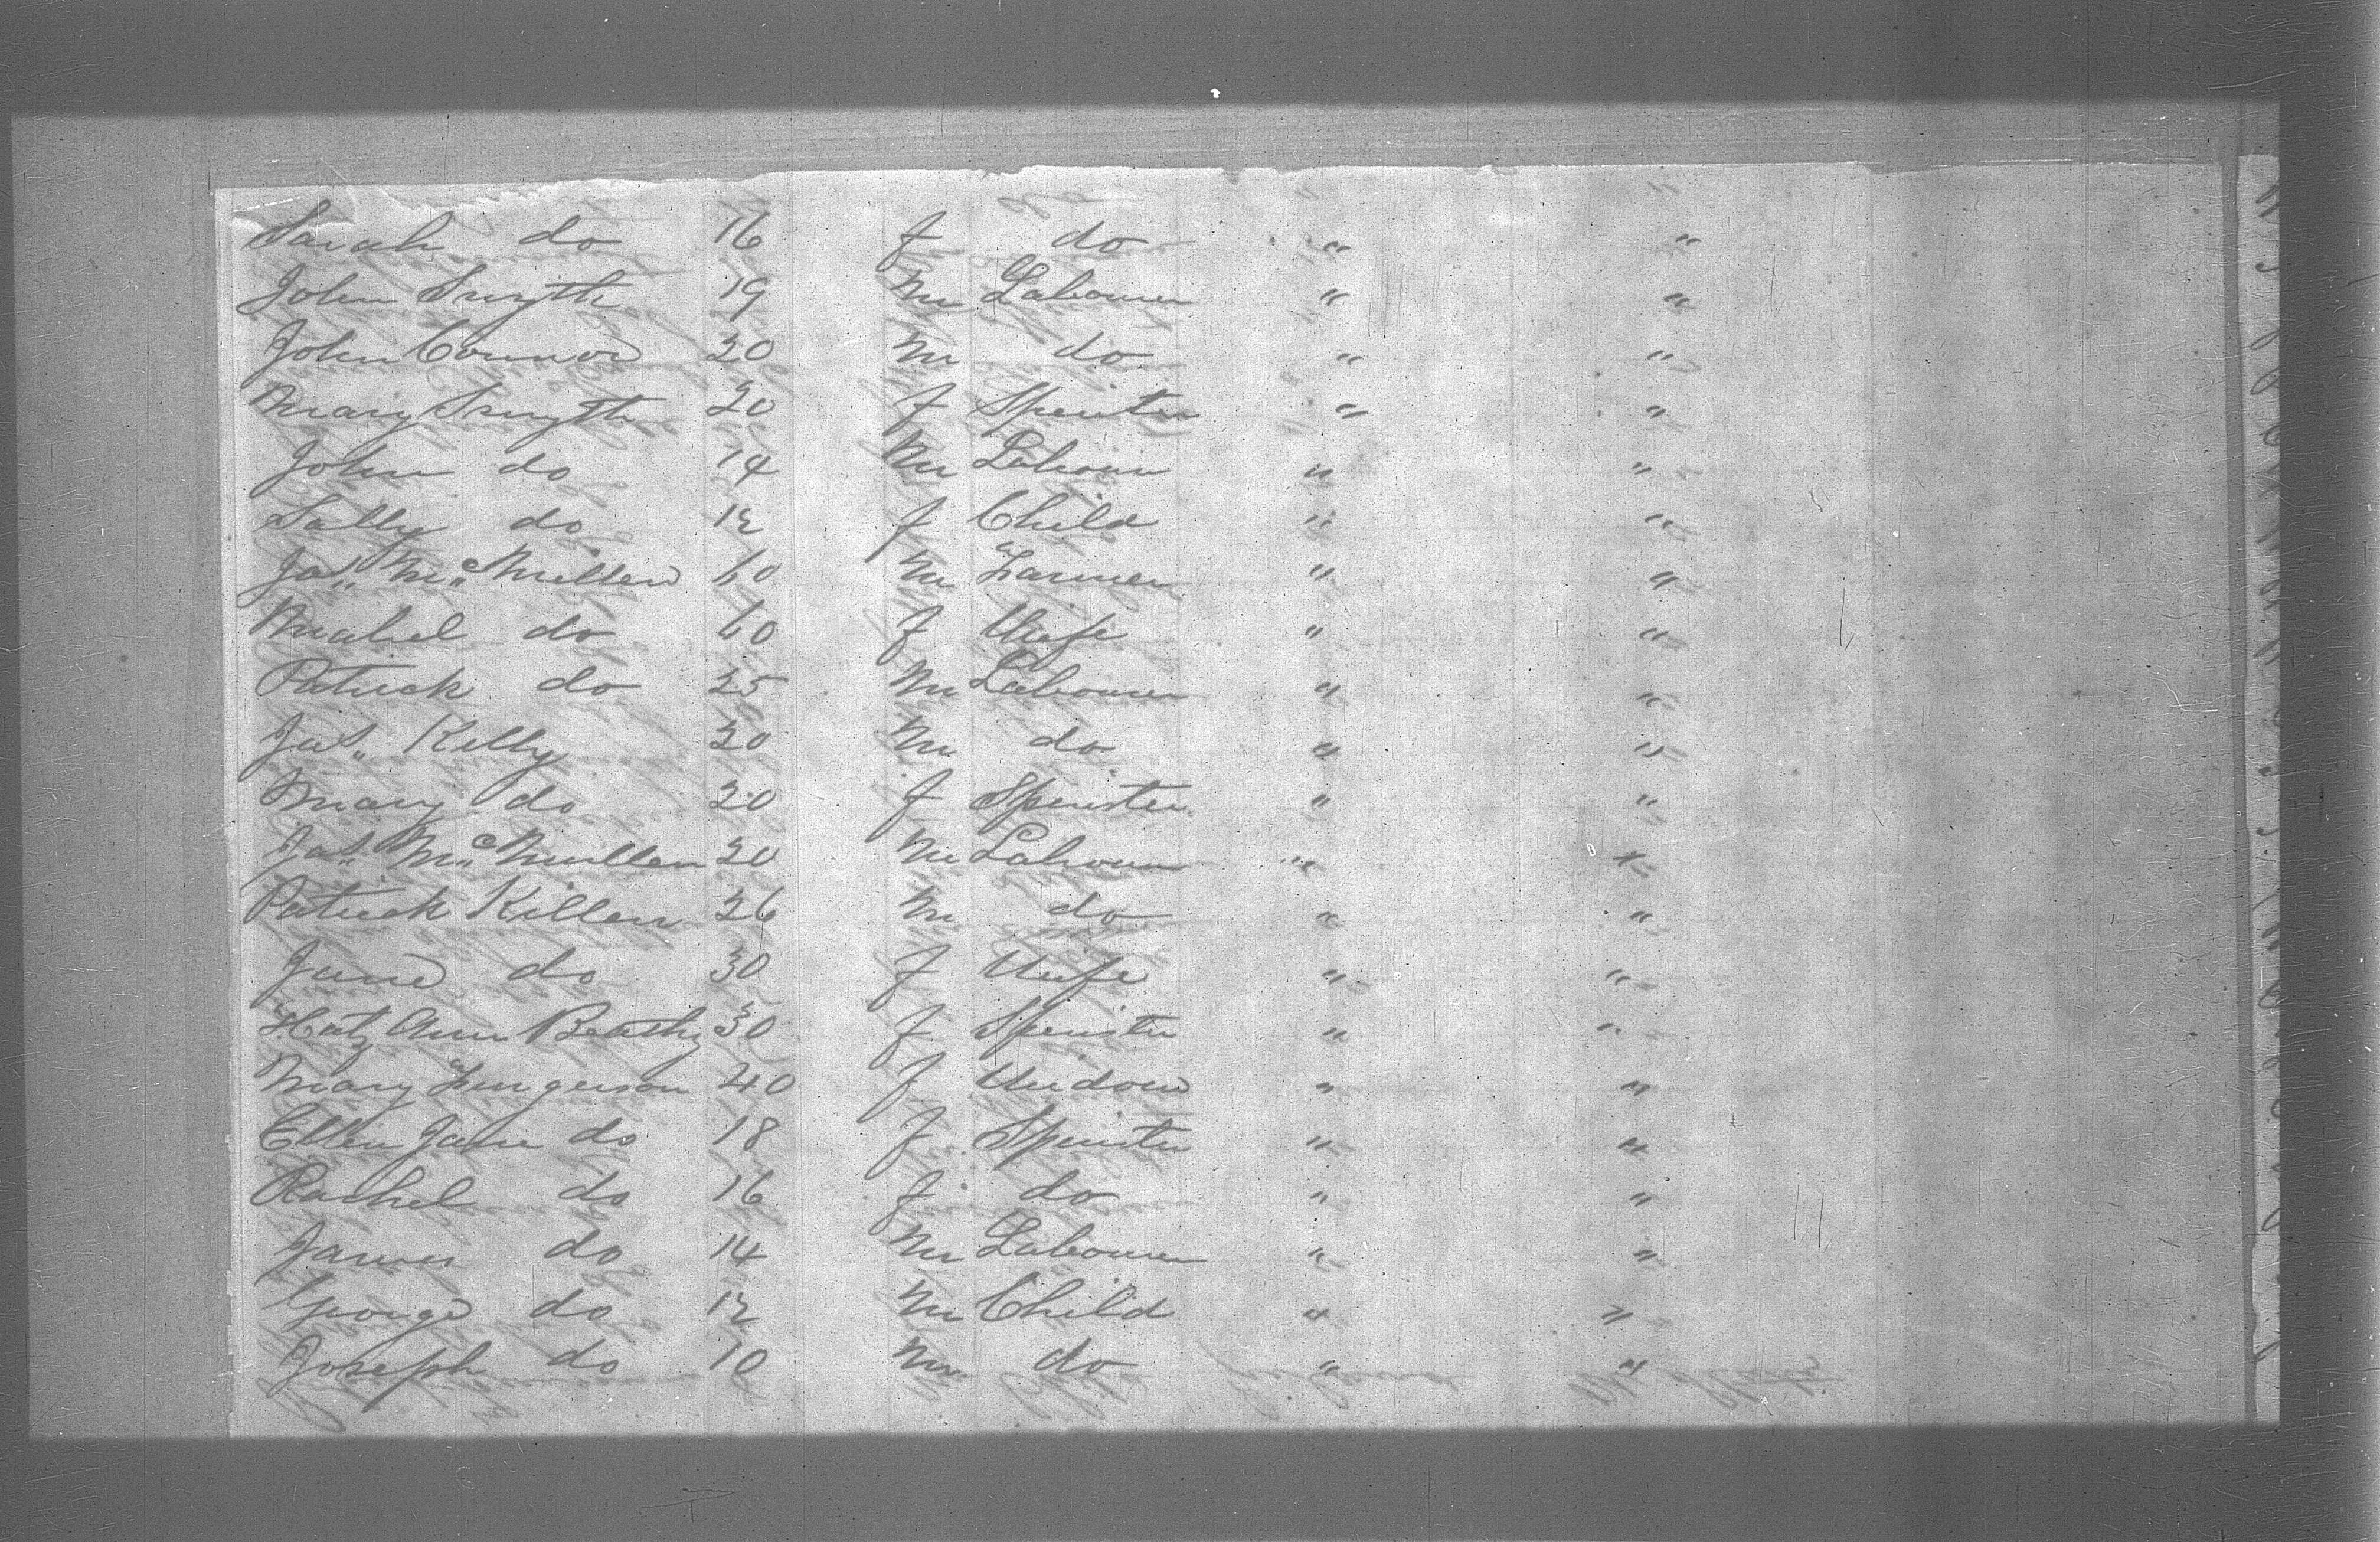 Sarah do 16 f do " "
John Smyth 19 m Labourer " "
John Connor 20 m do " "
Mary Smyth 20 f Spinster " "
John do 14 m Labourer " "
Sally do 12 f Child " "
Jas McMullen 60 m Farmer " "
Mabel do 60 f Wife " "
Patrick do 25 m Labourer " "
Jas Kelly 20 m do " "
Mary do 20 f Spinster " "
Jas McMullen 20 m Labourer " "
Patrick Killen 26 m do " "
Jane do 30 f Wife " "
Ann 30 f Spinster " "
Mary Furgerson 40 f Widow " "
Ellen Jane do 18 f Spinster " "
Rachel do 16 f do " "
James do 14 m Labourer " "
George do 12 m Child " "
Joseph do 10 m do " "